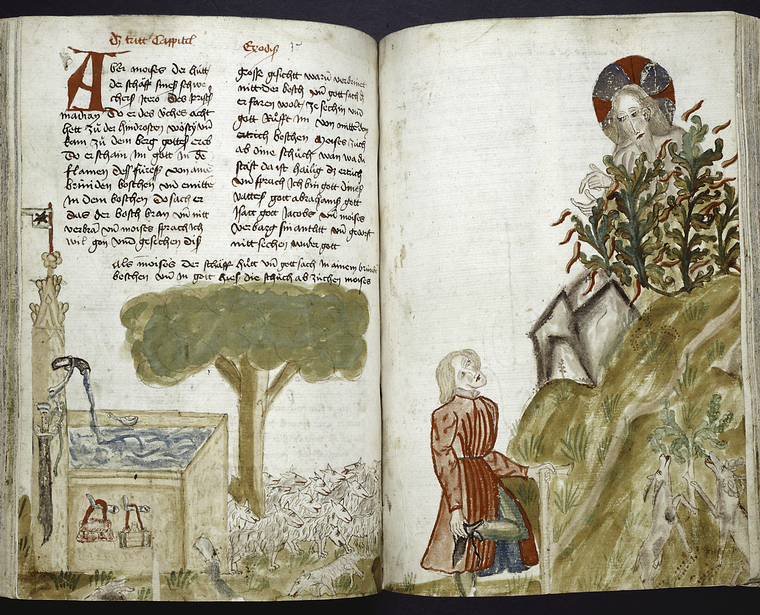 Dz tritt Cappittel Exodi
Aber moises der hütt
der schäff sines schwe
chers Jetro des pristers
madian do er des viches acht
hett zu der hindrosten wösty vñ
kam zů dem berg gottes oreb
Do erschain im gott in dē
flamen dess füres von ainē
brinenden boschen vñ emitte
in dem boschen do sach er
das der bosch bran vñ nitt
verbrā vñ moises sprach ich
wil gon vnd gesechen diß
grosse gesicht warū verbrinet
nitt der bosch vñ gott sach dz
er faren woolt ze sechin vnd
gott Růfft im von mitten des
boschen moises zuch
ab dine schůch wan wa du
stäst da ist hailig dz ertrich
vnd sprach Ich bin gott dines
vatters gott abrahams gott
Isacc gott Jacobs vñ moises
verbarg sin antlitt vñ
nitt sechen wider gott
als moises der schäff hütt vñ gott sach in ainem
boschen vñ in gott hies die schůch ab züchen moises